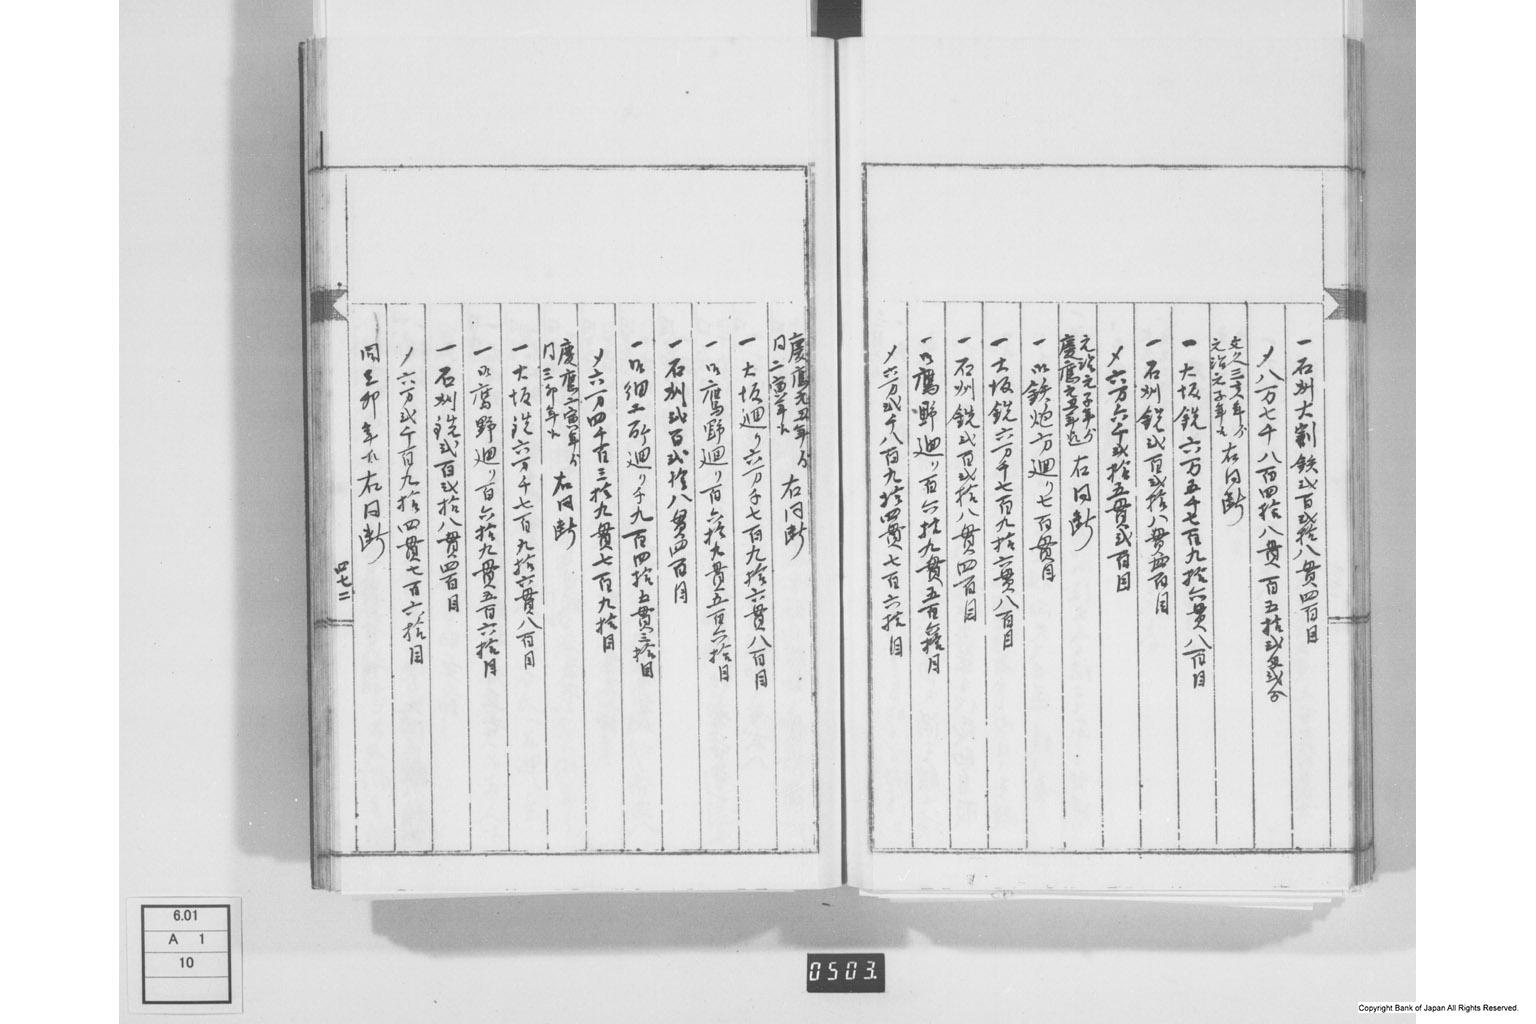 一石州大割鉄弐百弐拾八貫四百目
〆八万七千八百四拾八貫百五拾弐匁弐分
文久三亥年分
元治元子年 右同断
一大坂銑六万五千七百九拾六貫八百目
一石州銑弐百弐拾八貫四百目
〆六万六千弐拾五貫弐百目
元治元子年分
慶應元丑年 右同断
一 鉄炮方廻り七百貫目
一大坂銑六万千七百九拾六貫八百目
一石州銑弐百弐拾八貫四百目
一 鷹野廻り百六拾九貫五百六拾目
〆六万弐千八百九拾四貫七百六拾目
慶應元丑年分
同二寅年 右同断
一大坂廻り六万千七百九拾六貫八百目
一 鷹野廻り百六拾九貫五百六拾目
一石州弐百弐拾八貫四百目
一 細工所廻り千九百四拾五貫三拾目
〆六万四千百三拾九貫七百九拾目
慶應二寅年分
同三卯年 右同断
一大坂銑六万千七百九拾六貫八百目
一 鷹野廻り百六拾九貫五百六拾目
一石州銑弐百弐拾八貫四百目
〆六万弐千百九拾四貫七百六拾目
同三卯年 右同断
四七二
6.01
A 1
10
0503.
Copyright Bank of Japan All Rights Reserved.